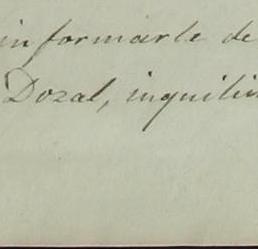 informarle de
Dozal, inquilin